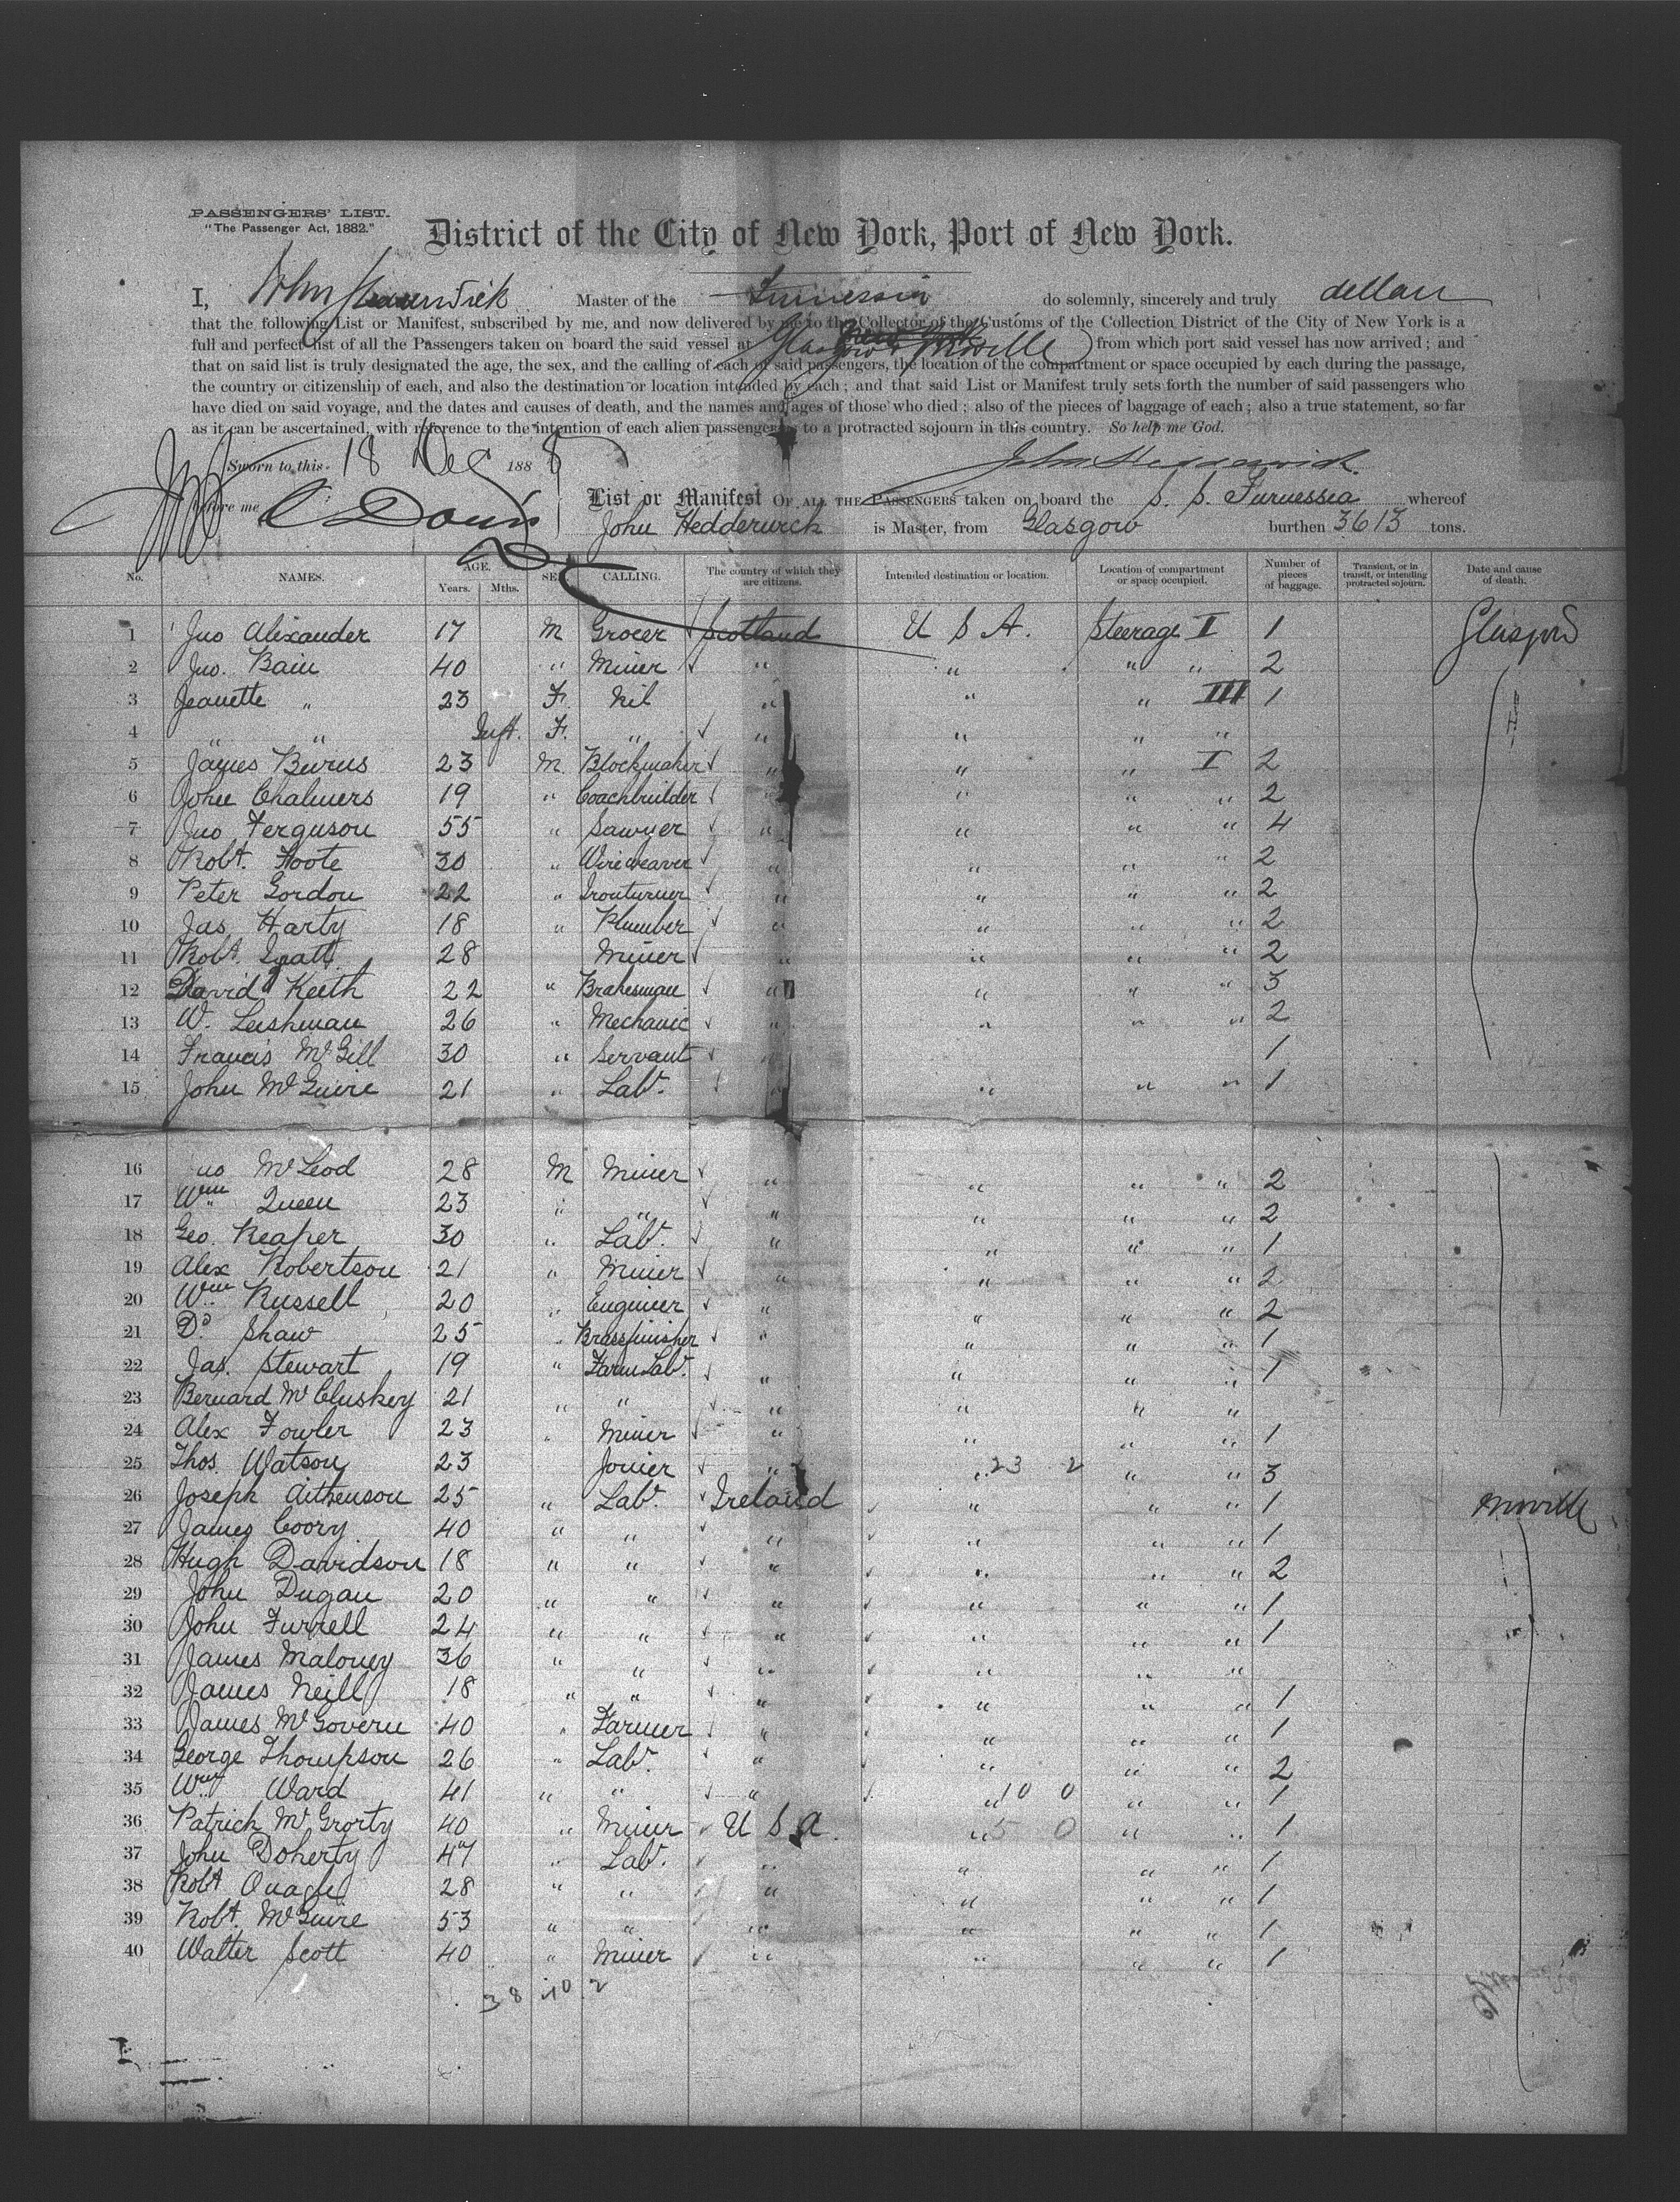 PASSENGERS' LIST.
"The Passenger Act, 1882."
District of the City of New York, Port of New York.
I, John Hedderwick Master of the Furnessia do solemnly, sincerely and truly declare
that the following List or Manifest, subscribed by me, and now delivered by me to the Collector of the Customs of the Collection District of the City of New York is a
full and perfect list of all the Passengers taken on board the said vessel at Glasgow & Moville from which port said vessel has now arrived; and
that on said list is truly designated the age, the sex, and the calling of each of said passengers, the location of the compartment or space occupied by each during the passage,
the country or citizenship of each, and also the destination or location intended by each; and that said List or Manifest truly sets forth the number of said passengers who
have died on said voyage, and the dates and causes of death, and the names and ages of those who died; also of the pieces of baggage of each; also a true statement, so far
as it can be ascertained, with reference to the intention of each alien passenger as to a protracted sojourn in this country. So help me God.
Sworn to this 18 Dec 1888
John Hedderwick.
before me
List or Manifest OF ALL THE PASSENGERS taken on board the S. S. Furnessia whereof
John Hedderwick is Master, from Glasgow burthen 3613 tons.
No. NAMES. AGE. Years. Mths. SEX. CALLING. The country of which they are citizens. Intended destination or location. Location of compartment or space occupied. Number of pieces of baggage. Transient, or in transit, or intending protracted sojourn. Date and cause of death.
1 Jno Alexander 17 M Grocer Scotland U S A. Steerage I 1 Glasgow
2 Jno. Bain 40 " Miner " " " " 2
3 Jeanette " 23 F. Nil " " " III 1
4 " " Inft. F. " " " " "
5 James Burns 23 M. Blockmaker " " " I 2
6 John Chalmers 19 " Coachbuilder " " " " 2
7 Jno Ferguson 55 " Sawyer " " " " 4
8 Robt. Foote 30 " Wireweaver " " " " 2
9 Peter Gordon 22 " Ironturner " " " " 2
10 Jas Harty 18 " Plumber " " " " 2
11 Robt. 28 Miner " " " " 2
12 David Keith 22 " Brakesman " " " " 3
13 W. Leishman 26 " Mechanic " " " " 2
14 Francis McGill 30 " Servant 1
15 John McGuire 21 " Labr. " " " " 1
16 Jno McLeod 28 M Miner " " " " 2
17 Wm Queen 23 " " " " " " 2
18 Geo. Reaper 30 " Labr. " " " " 1
19 Alex Robertson 21 " Miner " " " " 2
20 Wm Russell 20 " Engineer " " " " 2
21 Dd. Shaw 25 " Brassfinisher " " " " 1
22 Jas. Stewart 19 " Farm Labr. " " " " 1
23 Bernard McCluskey 21 " " " " " "
24 Alex Fowler 23 " Miner " " " " 1
25 Thos. Watson 23 Joiner " " 23 2 " " 3
26 Joseph Aitkenson 25 " Labr. Ireland " " " 1 Moville
27 James Coory 40 " " " " " " 1
28 Hugh Davidson 18 " " " " " " 2
29 John Dugan 20 " " " " " " 1
30 John Furrell 24 " " " " " " 1
31 James Maloney 36 " " " " " "
32 James Neill 18 " " " " " " 1
33 James McGovern 40 " Farmer " " " " 1
34 George Thompson 26 " Labr. " " " " 2
35 Wm Ward 41 " " " " 10 0 " " 1
36 Patrick McGrorty 40 " Miner U S A. " 5 0 " " 1
37 John Doherty 47 " Labr. " " " " 1
38 Robt 28 " " " " " " 1
39 Robt. McGuire 53 " " " " " " 1
40 Walter Scott 40 " Miner " " " " 1
38 40 2